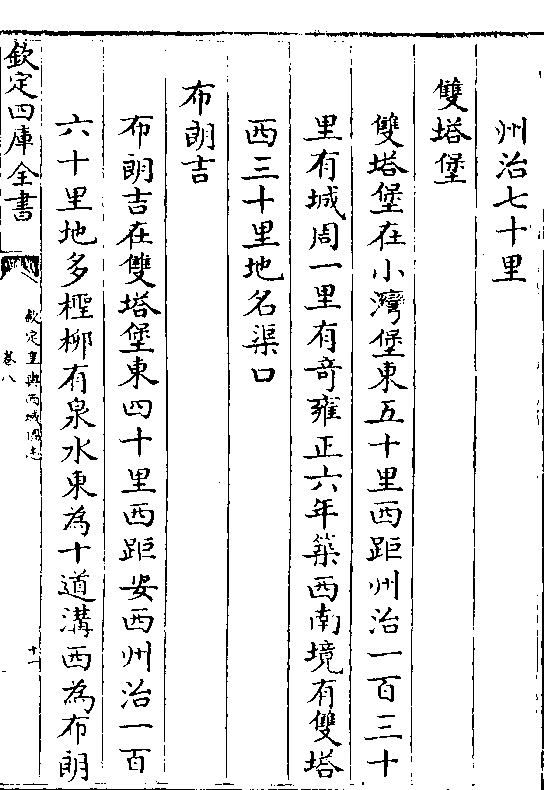 州治七十里
雙塔堡
雙塔堡在小灣堡東五十里西距州治一百三十
里有城周一里有奇雍正六年築西南境有雙塔
西三十里地名渠口
布朗吉
布朗吉在雙塔堡東四十里西距安西州治一百
六十里地多檉柳有泉水東為十道溝西為布朗
欽定四庫全書
欽定皇輿西域圖志
卷八
十一